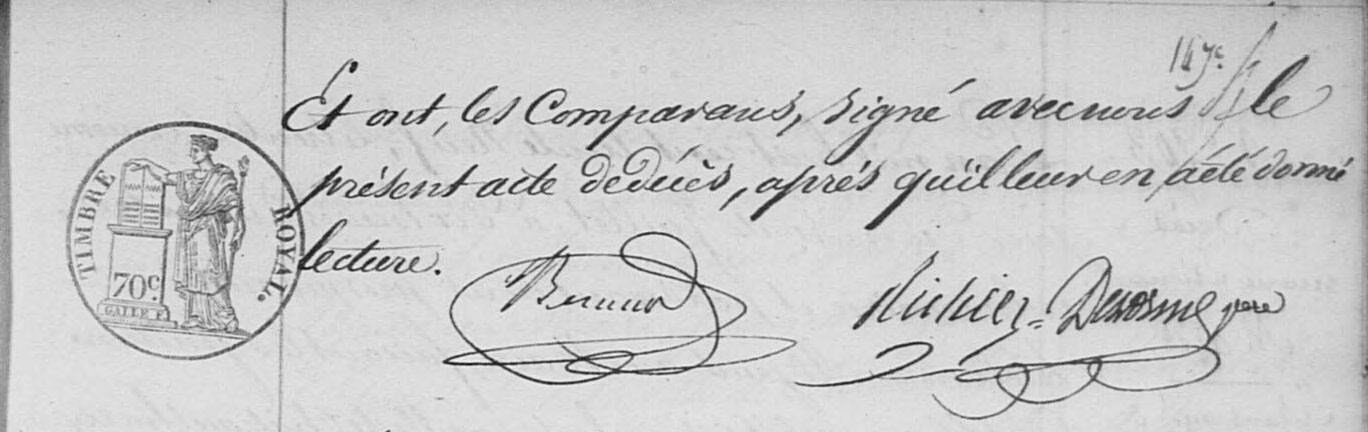 147e
Et ont, les Comparans, signé avec nous le
présent acte de décès, après qu'il leur en a été donné
lecture.
TIMBRE ROYAL.
70c.
père